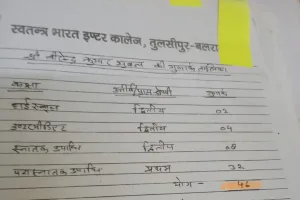 स्वतन्त्र भारत इण्टर कालेज, तुलसीपुर-बलरा
श्री वीरेन्द्र कुमार शुक्ल की गुणांक तालिका
कक्षा उत्तीर्ण श्रेणी गुणांक
हाई स्कूल द्वितीय 02
इण्टरमीडिएट द्वितीय 04
स्नातक उपाधि द्वितीय 08
परास्नातक उपाधि प्रथम 32
योग - 46